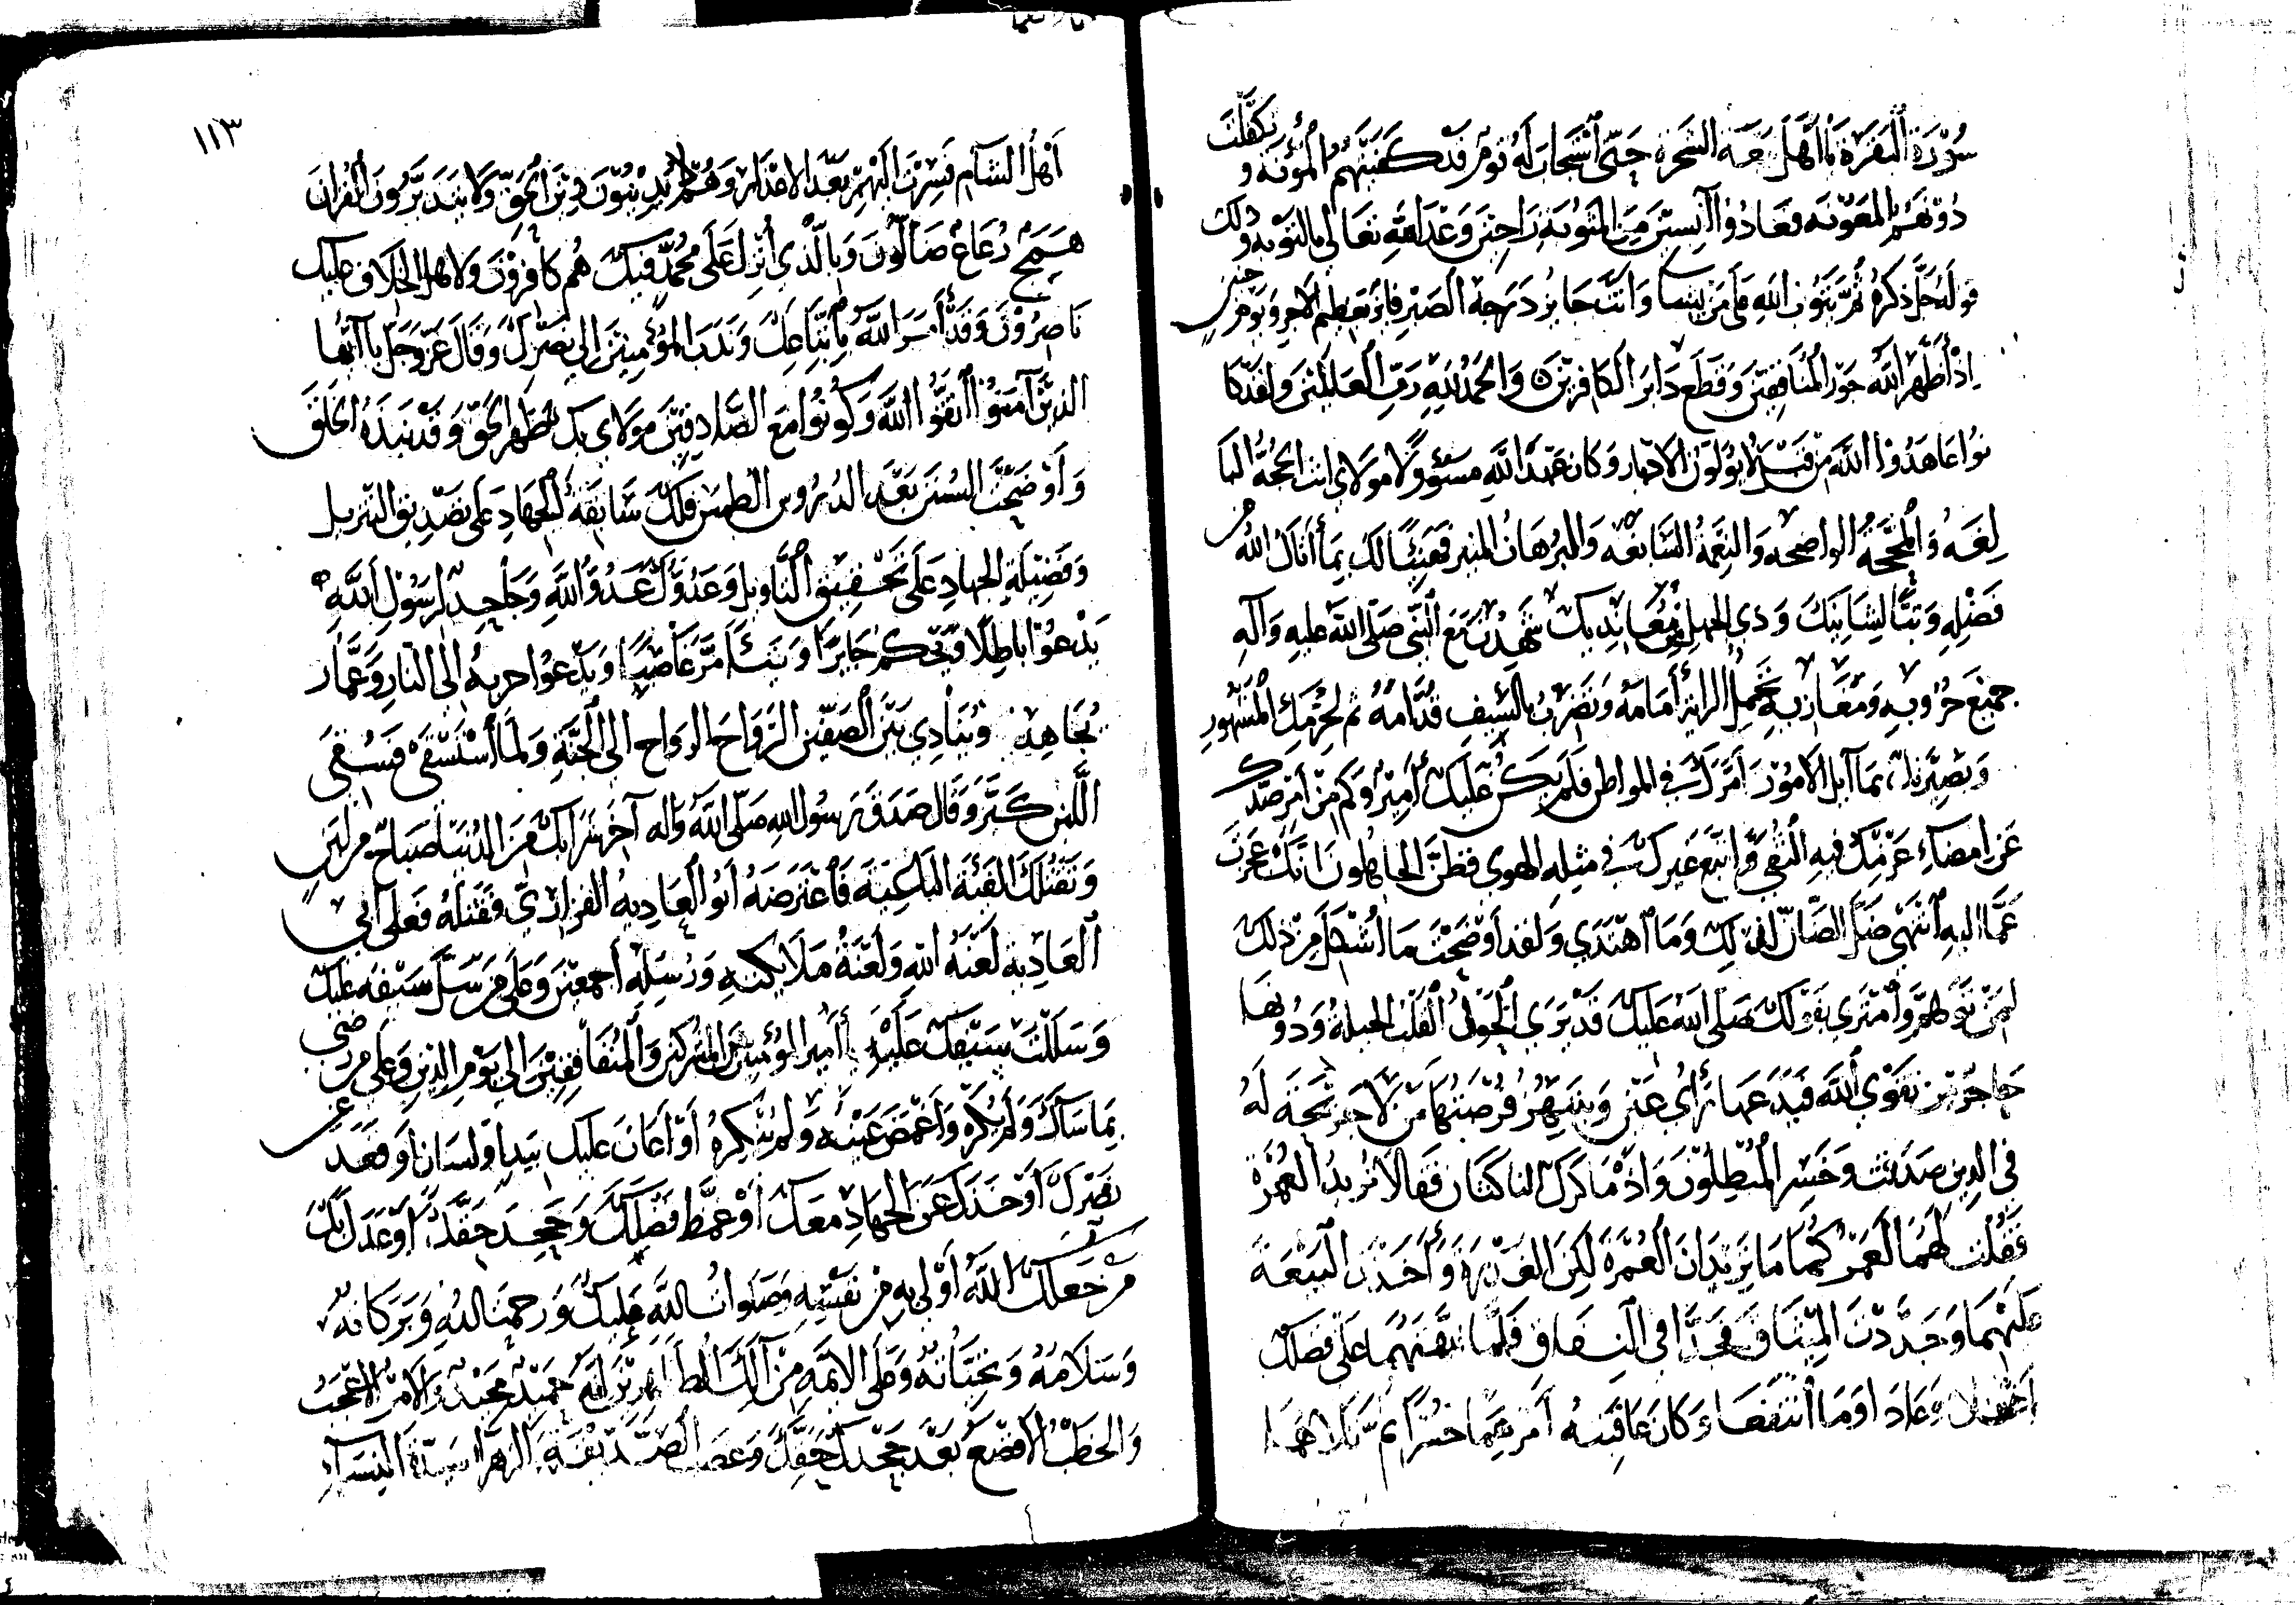 سُوْرَةِ الْبَقَرَةِ يَا أَهْلَ بَيْعَة الشَجَرة حَتّى اسْتَجابَ لَهُ قومٌ قَدْ كَفَيْتَهُمُ الْمؤنَة و تكَفَّلْتَ
دُوْنَهُمُ المعونَه فعَادُوا آيِسِيْنَ مِنَ المثوُبَةِ رَاجِيْنَ وَعْدَ اللهِ تعَالى بالتوبه وذلك
قولُه جَلَّ ذكرُه ثُمَّ يَتُوْبُ اللهِ عَلى مَنْ يشا وَ انتَ حَايزٌ دَرَجَة الصَبْرِ فايز بعَظِيم الاجر و يوم حنين
اِذْ أَظْهَرَ اللهُ خَوَر المُنَافِقِيْنَ وَقَطَعَ دَابِرَ الكَافِرِيْنَ وَالحَمْدُ لِلهِ رَبِّ العَالَمْينَ وَ لقَدْ كا
نوُا عَاهَدُوا اللهَ مِنْ قَبْلُ لاَ يوَلّونَ الادْبار وَكان عَهْدُ اللهِ مسؤولاً مولاي انت الحجةُ البا
لِغَه وَالمحَجَّةُ الواضحه وَالنِعْمةُ السَّابغَه وَالبرُهانُ المنير فهَنِيْئًا لكَ بِمَا أتاكَ اللهُ من
فَضْلِهِ وَ تبًّا لِشَانِيْكَ وَ ذي الجهل مُعَانِدِيك شَهِدْتَ مَعَ النَّبِي صَلّى اللهُ عليهِ وَآلهِ
جَميْعَ حُرُوبه وَمغَازيه تَحْمِلُ الرايةَ أمَامَهُ وَتَضْرِبُ بالسَّيفِ قُدَّامَهُ ثم لحزْمِكَ المشهُورِ
وَ بَصِيْرَتك بمَا آبل الاموُرَ أمَّرَكَ في المواطن فَلَم يكُنْ عَلَيكَ أَمِيْرٌ وَ كم مِنْ أمْرٍ صَدَّكَ
عَن امضَاءِ عَزْمِكَ فيهِ التُّقى وَ اتّبعَ غيركَ في مثِلِهِ الهوى فظنّ الجاهلونَ انَّكَ عَجزتَ
عَمَّا اليهِ انْتَهى ضَلَّ الظّانّ لذَلِكَ وَ مَا اهْتَدَي وَ لقد أوْضَحْتَ مَا أشْكَلَ مِنْ ذلكَ
لِمَنْ توَهّم وَ أمْتَري بقَوْلِكَ صَلَّى اللهُ عَليْكَ قَدْ يَرَى الحُوَّلُ القُلَّبُ الحيلةَ وَ دُونَهَا
حَاجِزٌ مِن تَقوْي اللهِ فَيَدَعهَا رَأْيَ عَيْنٍ وَ يَنْتَهِزُ فُرْصَتَهَا مَنْ لا جَرِيْحَةَ لَهُ
فِي الدِينِ صَدَقْتَ وَ خَسِرَ المُبْطِلُوْنَ وَ اذْ مَاكرَكَ الناكثَان فَقَالا نُرِيدُ العُمْرَةَ
فَقُلْتَ لَهُمَا لَعَمْرُكُمَا مَا تُرِيْدَانِ الْعُمْرَةَ لَكِنِ الغَدْرَةَ وَ أَخَذْتَ البَيْعَةَ
عَلَيْهِمَا وَ جَدَّدْتَ المِيْثَاقَ فَجَدَّا في النفَاقِ فَلَمَّا نَبَّهْتَهُمَا عَلى فعْلِكَ
اغْفَلا وَ عَادَا وَ مَا أنتَفَعَا وَ كانَ عَاقِبَةُ أمْرِهِمَا خُسْرًا ثمّ تلاهَا
١١٣
أهْلُ الشَام فَسِرْتَ اليْهمْ بَعْدَ الاعْذارِ وَ هُمْ لاَ يدِيْنُوْنَ دِيْنَ الحَقِّ وَ لا يَتَدَبَّرُونَ القُرانَ
هَمَجٌ رُعَاعٌ ضَالّونَ وَ بِالّذِي أنْزلَ عَلَى مُحَمَّدٍ فيكَ هُم كافروْنَ وَ لاهل الخِلَافِ عليك
نَاصِرُوْنَ وَ قَدْ أمَرَ اللهُ بِاتِّبَاعِكَ وَ نَدَبَ المؤمِنِيْنَ إلى نَصْرِكَ وَ قَالَ عَزَّ وَ جَلَّ يا أيُّهَا
الذِيْنَ آمَنوُا اتَّقوُا اللهَ وَ كونُوا مَعَ الصَّادِقِيْنَ مَوْلاي بِكَ ظهَر الحَقّ وَ قدْ نبَذَهُ الخَلقُ
وَ أوْضَحْتَ السُنَنَ بَعْدَ الدُرُوسِ و الطَمْس فلكَ سَابِقَةُ الجْهَادِ عَلى تصْدِيقِ التنزيل
وَ فَضِيْلةُ الجهادِ عَلَى تَحْقِيقِ التَّاويلِ وَ عَدُوُّكَ عَدُوُّ اللهِ وَ جَاحِدٌ لرَسُوْلِ اللهِ
يَدْعُوْا باطِلًا وَيَحْكمُ جَايِرًا وَ يتَأَمَّرُ غَاصِبًا وَ يَدْعوُا حزبهُ إلى النارِ وَ عَمَّار
يُجَاهِدُ وَ يُنَادِي بَيْنَ الصَّفّينِ الرَوَاحَ الرواحَ الى الجَنّةِ وَ لمَّا أسْتَسْقَى فَسُقِيَ
اللَّبنَ كَبَّرَ وَ قَال صَدَقَ رَسُول اللهِ صَلّى اللهُ وَاله آخرُ شَرَابِكَ مِنَ الدُنيَا ضَيَاحٌ مِن لَبَنٍ
وَ تَقْتُلكَ الفئَةُ البَاغِيَة فَاعْتَرَضَهُ أبُو العَادِيه الفزارِيّ فَقَتلَهُ فَعَلى أبي
العَادِية لَعْنَهُ اللهِ وَلَعْنَةُ مَلَايكتِهِ وَ رُسُلِهِ أجمعِيْنَ وَ عَلى مَن سَلَّ سَيْفه عَليْكَ
وَ سَلَلْتَ سَيْفَكَ عَلَيْهِ يا أمير المؤمِنين من المشركين وَ المُنَافِقِيْنَ الى يَوْمِ الدِّينِ وَ عَلى مَن رضِيَ
بِمَا سَآكَ وَ لَمْ يكْرهْ وَ أَغْمَضَ عَيْنَه وَ لمْ يُنْكِرهُ أوْ أعَانَ عَليْكَ بيَدٍ أو لسَانٍ أوْ قعَدَ عَن
نَصْرِكَ أَوْ خَذَلَ عَنِ الجهَادِ مَعَكَ أَوْ غمَطَ فَضْلكَ وَ جَحَدَ حَقَّكَ أوْ عَدَلَ بِكَ
مَنْ جَعَلكَ اللهُ أوْلى بِهِ مِن نَفْسِهِ وَ صَلَواتُ اللهِ عَلَيكَ وَ رَحْمَةُ اللهِ وَ بَرَكاتهُ
وَ سَلَامُهُ وَ تَحِيَّاتهُ وَ عَلى الائمَّهِ مِنْ آلِكَ الطَاهِرِيْنَ إنهُ حَمِيْدٌ مَجِيْدٌ وَ الامْرُ الاعْجَبُ
وَ الخَطْبُ الافْضَعُ بَعْدَ جَحْدِكَ حَقَّكَ وَ غصب الصِّدِّيْقَةِ الزهرَاء سَيِّدَة النِسَآءِ